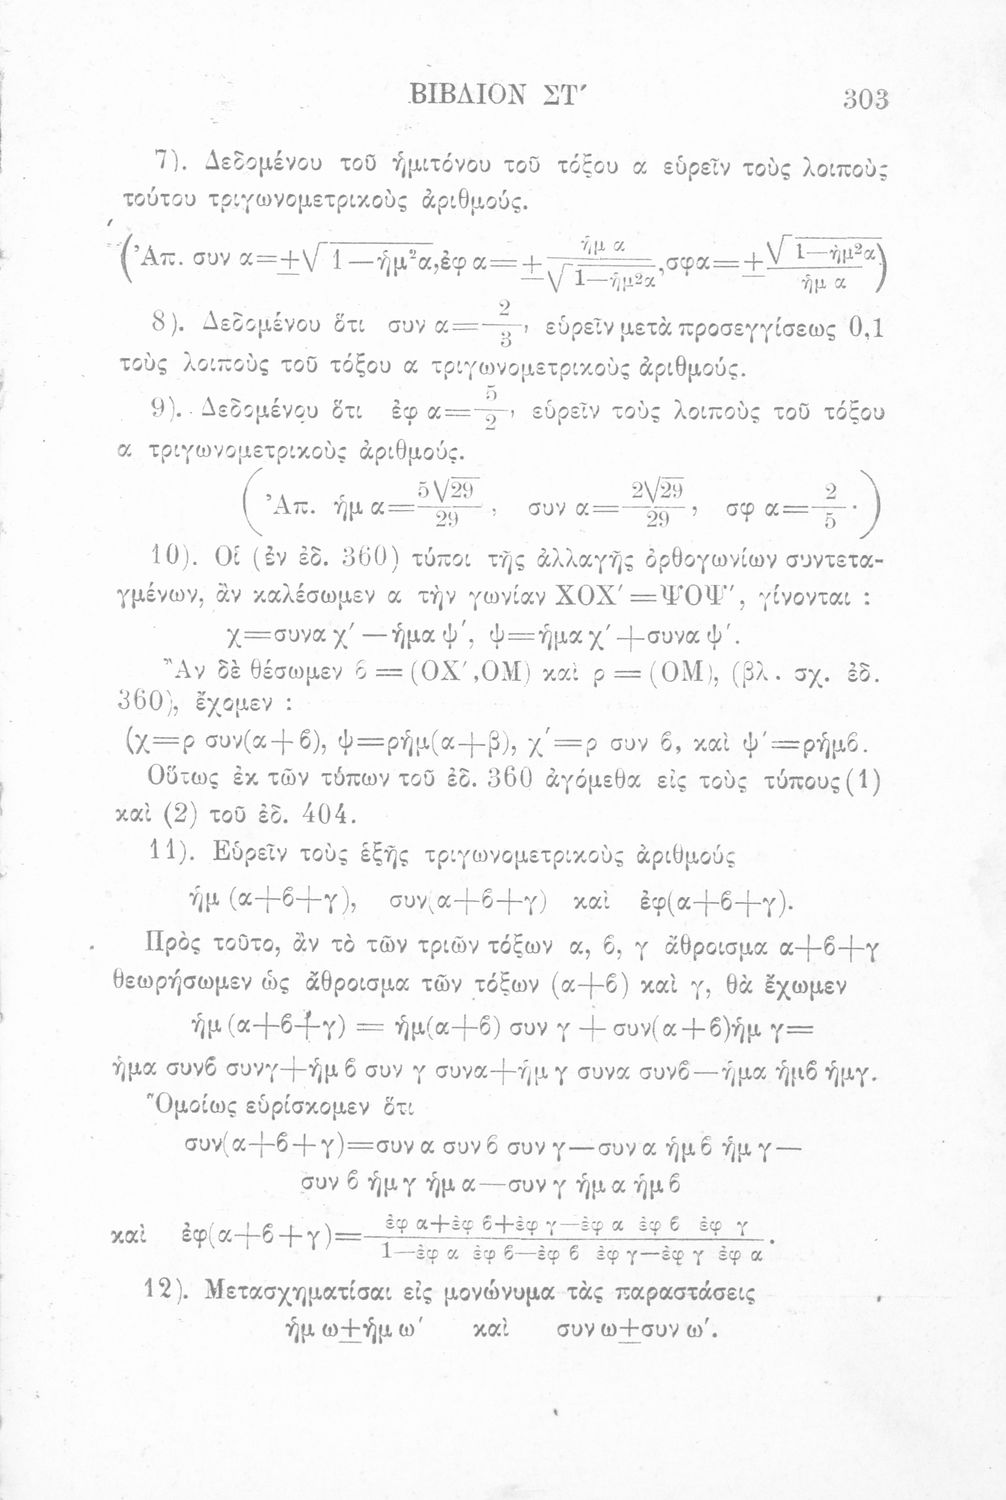 ΒΙΒΛΙΟΝ ΣΤ′ 303
7). Δεδομένου τοῦ ἡμιτόνου τοῦ τόξου α εὑρεῖν τοὺς λοιποὺς
τούτου τριγωνομετρικοὺς ἀριθμούς.
(Ἀπ. συν α=±√1—ἡμ²α, ἐφ α=± ἡμ α/√1—ἡμ²α, σφα=± √1—ἡμ²α/ἡμ α)
8). Δεδομένου ὅτι συν α=2/3, εὑρεῖν μετὰ προσεγγίσεως 0,1
τοὺς λοιποὺς τοῦ τόξου α τριγωνομετρικοὺς ἀριθμούς.
9). Δεδομένου ὅτι ἐφ α=5/2, εὑρεῖν τοὺς λοιποὺς τοῦ τόξου
α τριγωνομετρικοὺς ἀριθμούς.
(Ἀπ. ἡμ α=5√29/29, συν α=2√29/29, σφ α=2/5.)
10). Οἱ (ἐν ἐδ. 360) τύποι τῆς ἀλλαγῆς ὀρθογωνίων συντετα-
γμένων, ἂν καλέσωμεν α τὴν γωνίαν ΧΟΧ′=ΨΟΨ′, γίνονται :
χ=συνα χ′—ἡμα ψ′, ψ=ἡμα χ′+συνα ψ′.
Ἂν δὲ θέσωμεν ϐ=(ΟΧ′,ΟΜ) καὶ ρ=(ΟΜ), (βλ. σχ. ἐδ.
360), ἔχομεν :
(χ=ρ συν(α+ϐ), ψ=ρἡμ(α+β), χ′=ρ συν ϐ, καὶ ψ′=ρἡμϐ.
Οὕτως ἐκ τῶν τύπων τοῦ ἐδ. 360 ἀγόμεθα εἰς τοὺς τύπους (1)
καὶ (2) τοῦ ἐδ. 404.
11). Εὑρεῖν τοὺς ἑξῆς τριγωνομετρικοὺς ἀριθμούς
ἡμ (α+ϐ+γ), συν(α+ϐ+γ) καὶ ἐφ(α+ϐ+γ).
Πρὸς τοῦτο, ἂν τὸ τῶν τριῶν τόξων α, ϐ, γ ἄθροισμα α+ϐ+γ
θεωρήσωμεν ὡς ἄθροισμα τῶν τόξων (α+ϐ) καὶ γ, θὰ ἔχωμεν
ἡμ (α+ϐ+γ) = ἡμ(α+ϐ) συν γ + συν(α+ϐ)ἡμ γ=
ἡμα συνϐ συνγ+ἡμ ϐ συν γ συνα+ἡμ γ συνα συνϐ—ἡμα ἡμϐ ἡμγ.
Ὁμοίως εὑρίσκομεν ὅτι
συν(α+ϐ+γ)=συν α συν ϐ συν γ—συν α ἡμ ϐ ἡμ γ—
συν ϐ ἡμ γ ἡμ α—συν γ ἡμ α ἡμ ϐ
καὶ ἐφ(α+ϐ+γ)= ἐφ α+ἐφ ϐ+ἐφ γ—ἐφ α ἐφ ϐ ἐφ γ / 1—ἐφ α ἐφ ϐ—ἐφ ϐ ἐφ γ—ἐφ γ ἐφ α.
12). Μετασχηματίσαι εἰς μονώνυμα τὰς παραστάσεις
ἡμ ω±ἡμ ω′ καὶ συν ω±συν ω′.